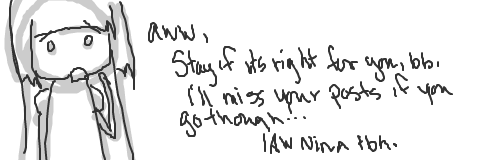 aww,
Stay if its right for you, bb.
I'll miss your posts if you
go though...
IAW Nina tbh.